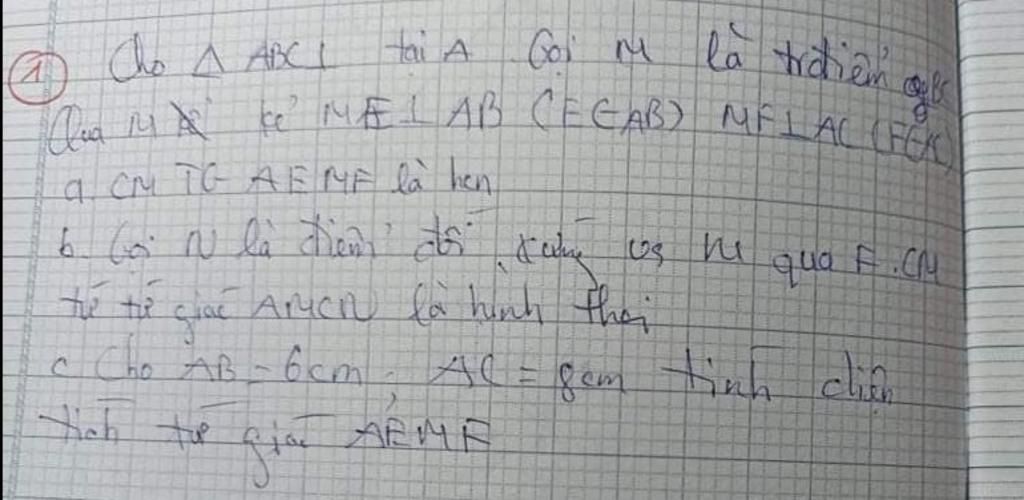 1 Cho Δ ABC ⊥ tại A Gọi M là trđiểm của BC
Qua M kẻ ME ⊥ AB (E ∈ AB) MF ⊥ AC (F ∈ AC)
a. CM TG AEMF là hcn
b. Gọi N là điểm đối xứng vs M qua F. CM
tứ tứ giác AMCN là hình thoi
c Cho AB = 6cm. AC = 8cm tính diện
tích tứ giác AEMF